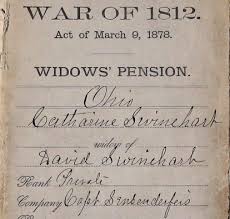 WAR OF 1812.
Act of March 9, 1878.
WIDOWS' PENSION.
Ohio
Catharine Swinehart
widow of
David Swinehart
Rank Private
Company Capt